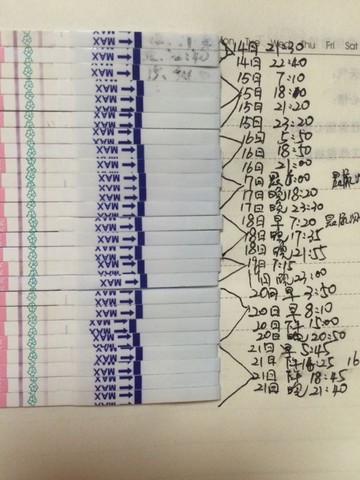 Fri Sat
14日 21:30
14日 22:40
15日 7:10
15日 18:00
15日 21:20
15日 23:20
16日 5:50
16日 18:50
16日 21:00
17日 6:00
17日晚18:20
17日晚23:30
18日早7:20
18日晚17:35
18日晚21:55
19日 7:15
晚23:00
20日早3:50
20日早8:10
20日下15:00
20日晚20:50
21日早5:45
21日下16:25 16
21日下18:45
21日晚21:40
MAX
MAX
MAX
MAX
MAX
MAX
MAX
MAX
MAX
MAX
MAX
MAX
MAX
MAX
MAX
MAX
MAX
MAX
MAX
MAX
MAX
MAX
MAX
MAX
MAX